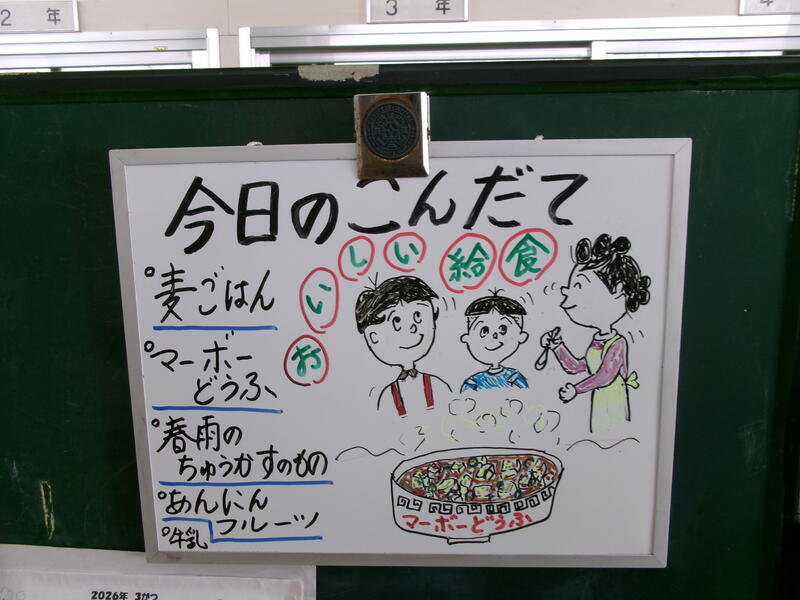 2 年
3 年
4
今日のこんだて
おいしい給食
°麦ごはん
°マーボー
どうふ
°春雨の
ちゅうかすのもの
°あんにん
フルーツ
°牛乳
マーボーどうふ
2026年 3がつ